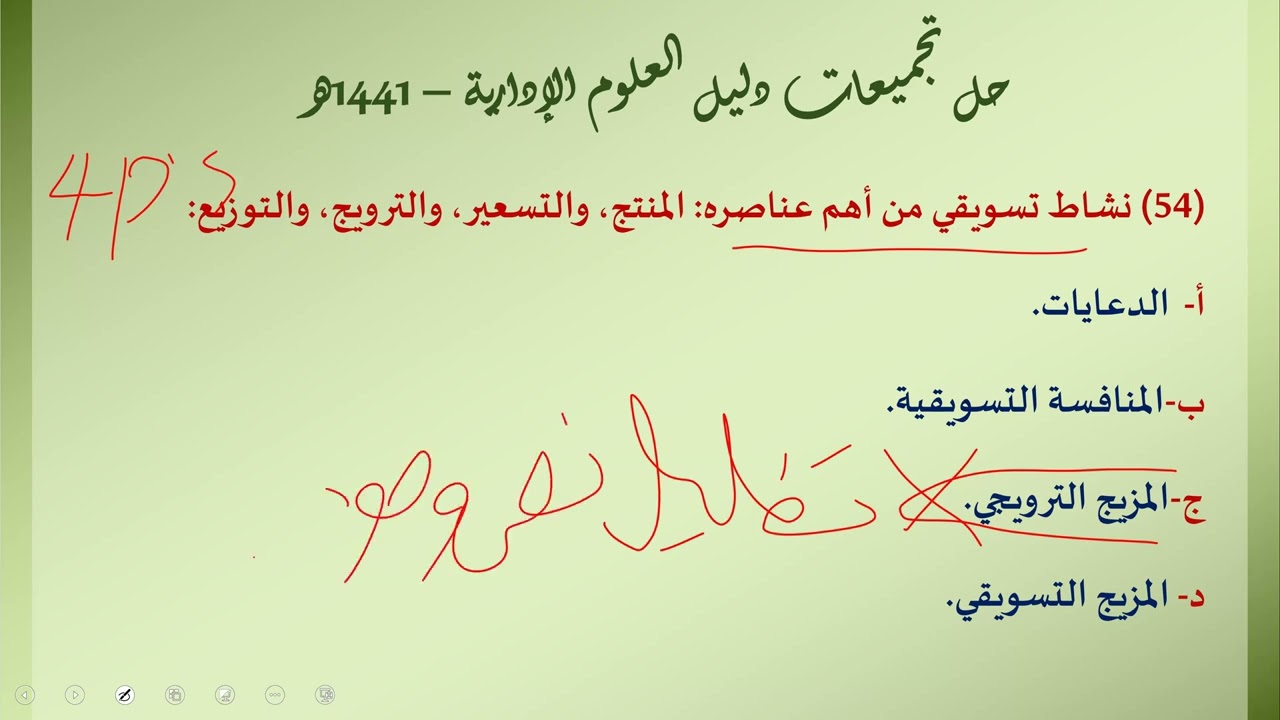 حل تجميعات دليل العلوم الإدارية – 1441هـ
4 P's
(54) نشاط تسويقي من أهم عناصره: المنتج، والتسعير، والترويج، والتوزيع:
أ- الدعايات.
ب-المنافسة التسويقية.
ج-المزيج الترويجي.
د- المزيج التسويقي.